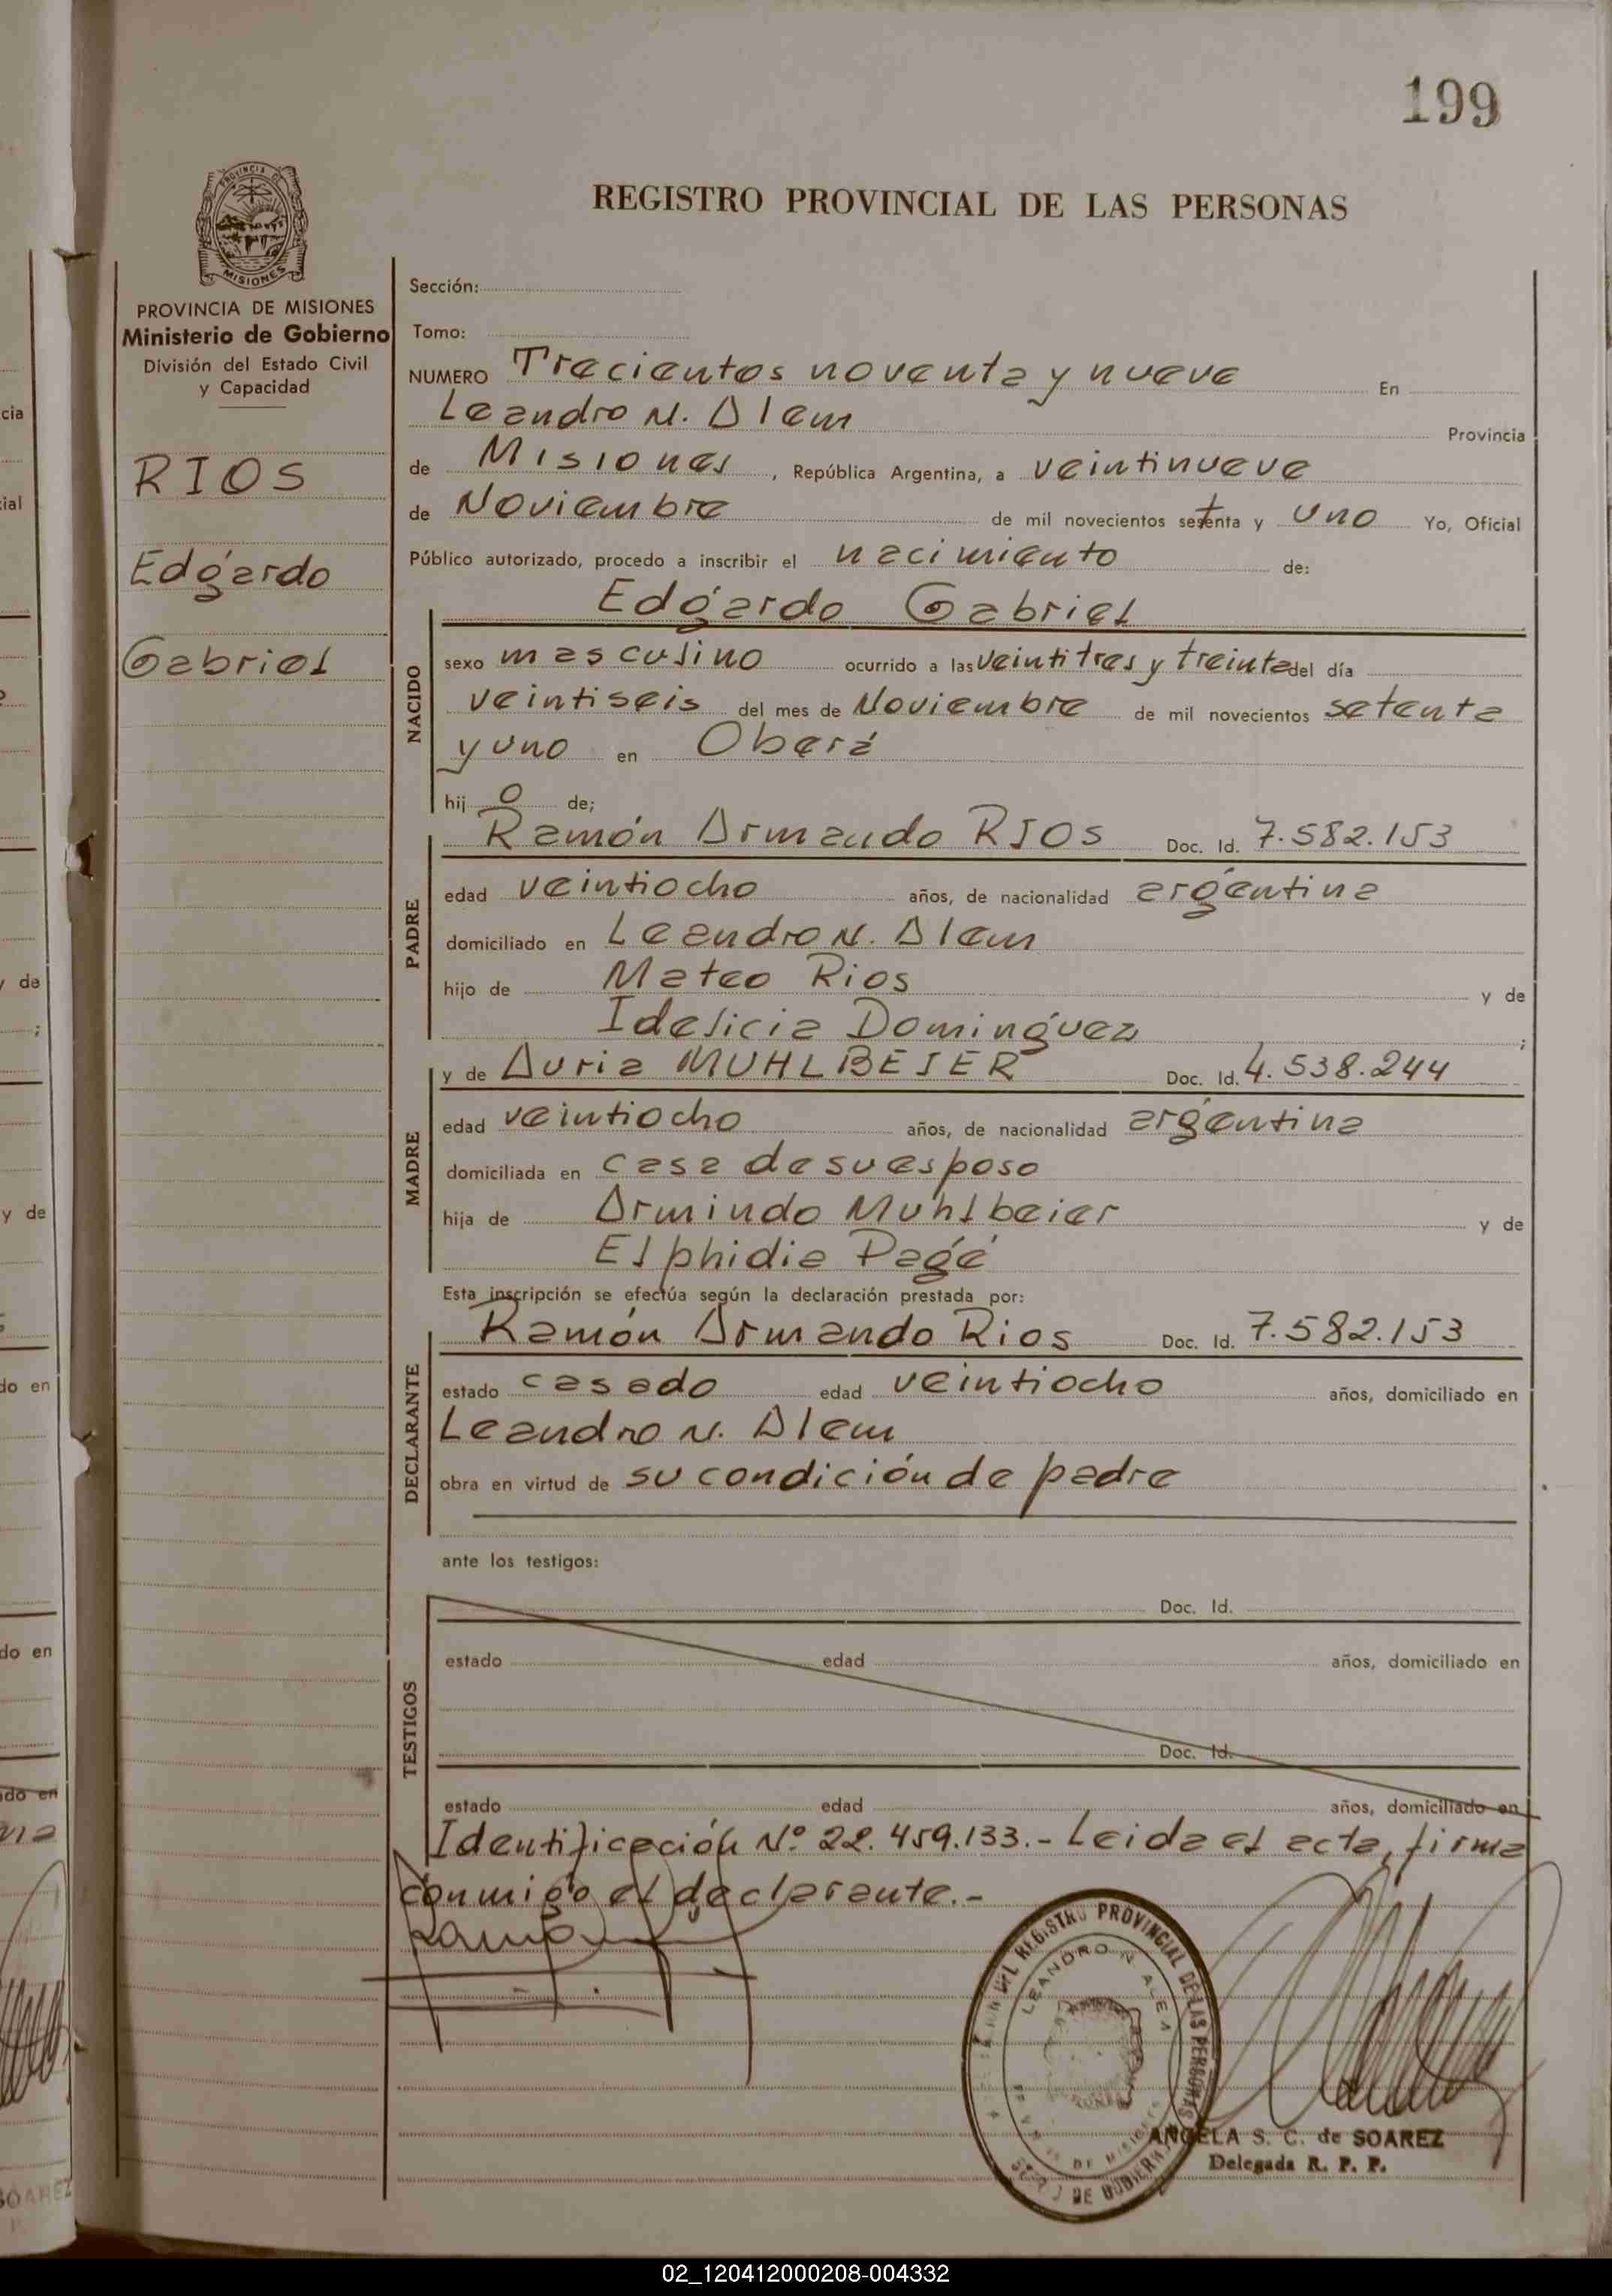 199
REGISTRO PROVINCIAL DE LAS PERSONAS
PROVINCIA DE
MISIONES
PROVINCIA DE MISIONES
Ministerio de Gobierno
División del Estado Civil
y Capacidad
RIOS
Edgardo
Gabriel
Sección:
Tomo:
NUMERO Trecientos noventa y nueve En
Leandro N. Alem Provincia
de Misiones, República Argentina, a veintinueve
de Noviembre de mil novecientos setenta y uno Yo, Oficial
Público autorizado, procedo a inscribir el nacimiento de:
Edgardo Gabriel
NACIDO
sexo masculino ocurrido a las veintitres y treinta del día
veintiseis del mes de Noviembre de mil novecientos setenta
y uno en Oberá
hij o de;
Ramón Armando RIOS Doc. Id. 7.582.153
PADRE
edad veintiocho años, de nacionalidad argentina
domiciliado en Leandro N. Alem
hijo de Mateo Rios y de
Idelicia Dominguez ;
y de Auria MUHLBEIER Doc. Id. 4.538.244
MADRE
edad veintiocho años, de nacionalidad argentina
domiciliada en casa de su esposo
hija de Armindo Muhlbeier y de
Elphidia Pagé
Esta inscripción se efectúa según la declaración prestada por:
Ramón Armando Rios Doc. Id. 7.582.153
DECLARANTE
estado casado edad veintiocho años, domiciliado en
Leandro N. Alem
obra en virtud de su condición de padre
ante los testigos:
Doc. Id.
TESTIGOS
estado edad años, domiciliado en
Doc. Id.
estado edad años, domiciliado en
Identificación Nº 22.459.133.- Leida el acta, firma
conmigo el declarante.-
REGISTRO PROVINCIAL DE LAS PERSONAS
LEANDRO N. ALEM
DE MISIONES
ANGELA S. C. de SOAREZ
Delegada R. P. P.
cia
ial
y de
;
y de
do en
do en
do en
na
SOAREZ
02_120412000208-004332